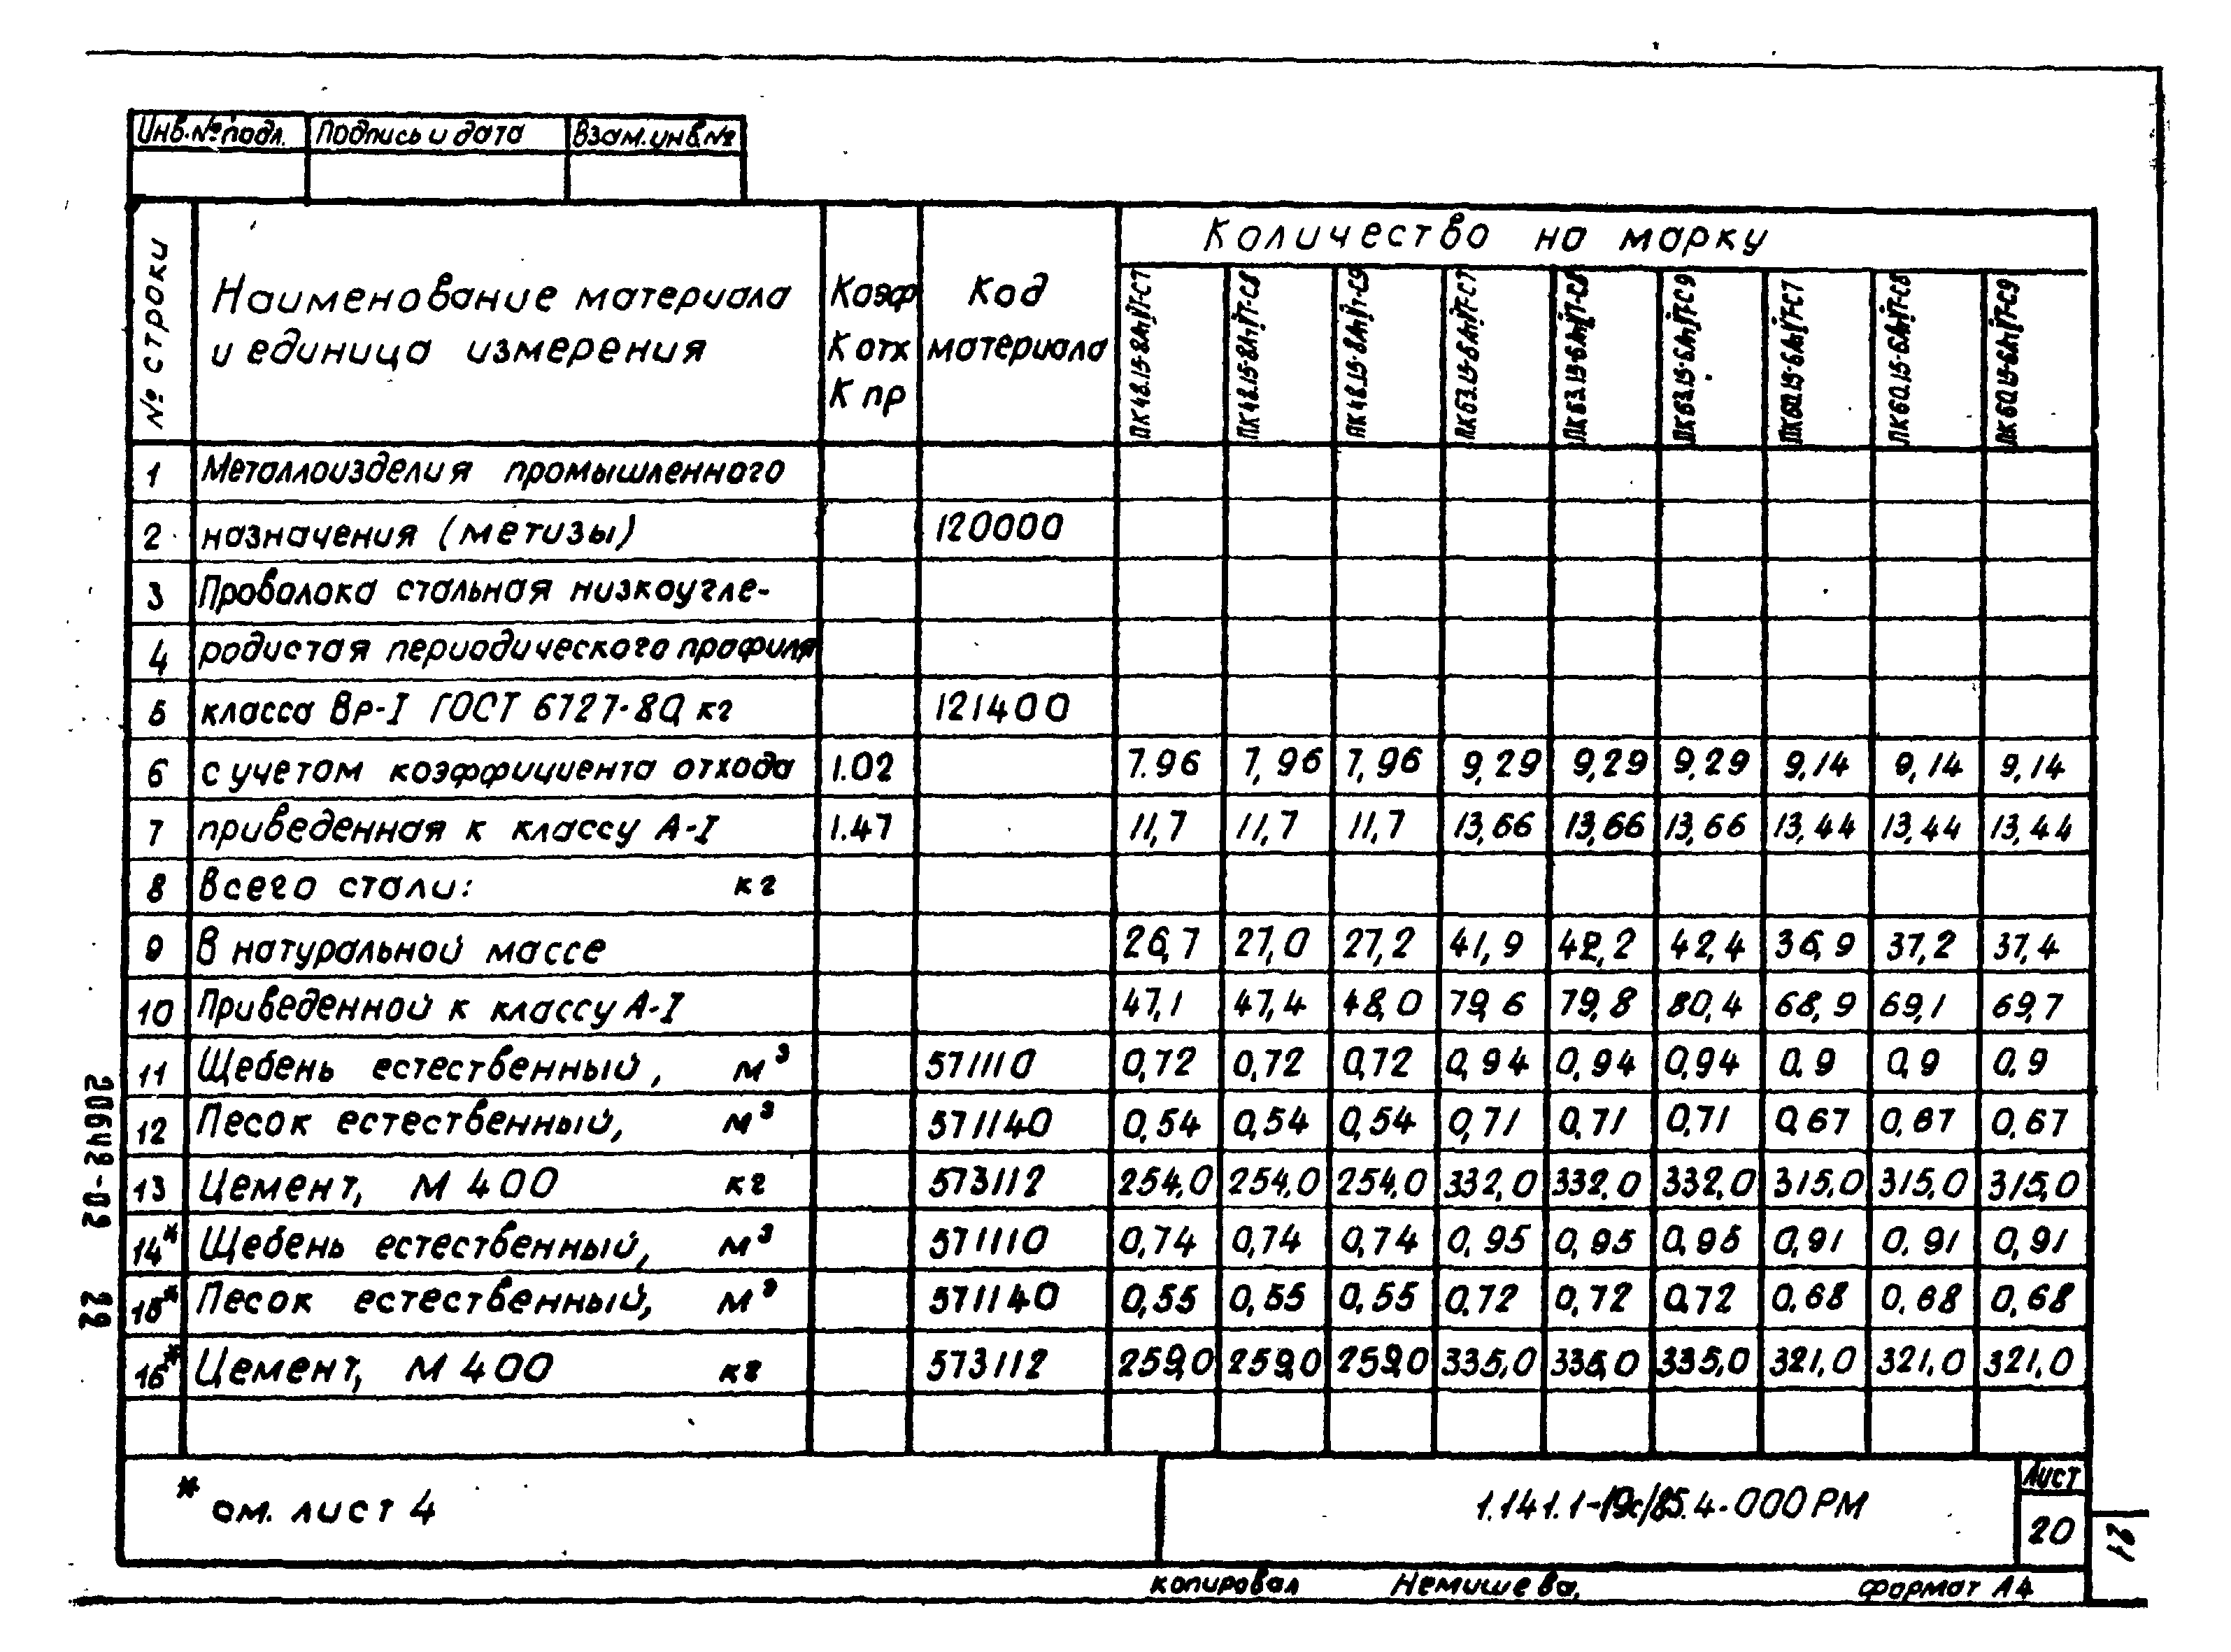 Инв.№ подл. Подпись и дата Взам.инв.№
№ строки Наименование материала и единица измерения Коэф К отх К пр Код материала Количество на марку
1 Металлоизделия промышленного
2 назначения (метизы) 120000
3 Проволока стальная низкоугле-
4 родистая периодического профиля
5 класса Вр-I ГОСТ 6727-80 кг 121400
6 с учетом коэффициента отхода 1.02 7.96 7,96 7,96 9,29 9,29 9,29 9,14 9,14 9,14
7 приведенная к классу А-I 1.47 11,7 11,7 11,7 13,66 13,66 13,66 13,44 13,44 13,44
8 всего стали: кг
9 В натуральной массе 26,7 27,0 27,2 41,9 42,2 42,4 36,9 37,2 37,4
10 Приведенной к классу А-I 47,1 47,4 48,0 79,6 79,8 80,4 68,9 69,1 69,7
11 Щебень естественный, м³ 571110 0,72 0,72 0,72 0,94 0,94 0,94 0,9 0,9 0,9
12 Песок естественный, м³ 571140 0,54 0,54 0,54 0,71 0,71 0,71 0,67 0,67 0,67
13 Цемент, М 400 кг 573112 254,0 254,0 254,0 332,0 332,0 332,0 315,0 315,0 315,0
14* Щебень естественный, м³ 571110 0,74 0,74 0,74 0,95 0,95 0,95 0,91 0,91 0,91
15* Песок естественный, м³ 571140 0,55 0,55 0,55 0,72 0,72 0,72 0,68 0,68 0,68
16* Цемент, М 400 кг 573112 259,0 259,0 259,0 335,0 335,0 335,0 321,0 321,0 321,0
* см. лист 4
1.141.1-19с/85.4-000 РМ
Лист
20
копировал Немишева. формат А4
20642-02 22
21